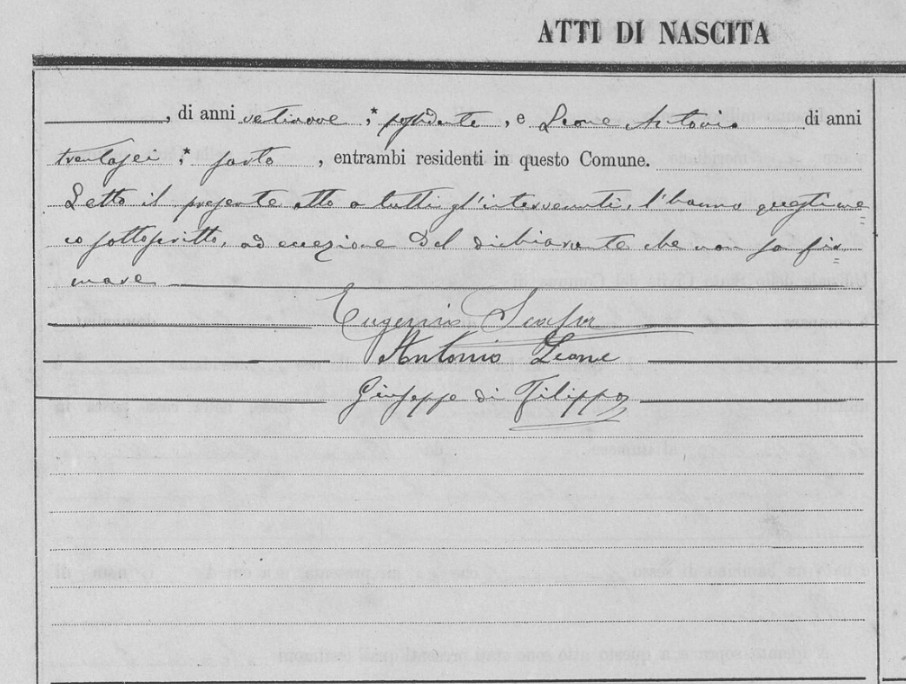 ATTI DI NASCITA
, di anni ventinove ; * possidente , e Leone Antonio di anni
trentasei ; * sarto , entrambi residenti in questo Comune.
Letto il presente atto a tutti gl'intervenuti, l'hanno questi me=
co sottoscritto, ad eccezione del dichiarante che non sa fir=
mare
Eugenio
Antonio Leone
Giuseppe di Filippo